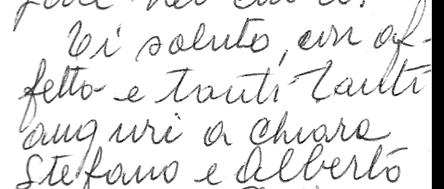 Vi saluto, con af-
fetto e tanti tanti
auguri a Chiara
Stefano e Alberto